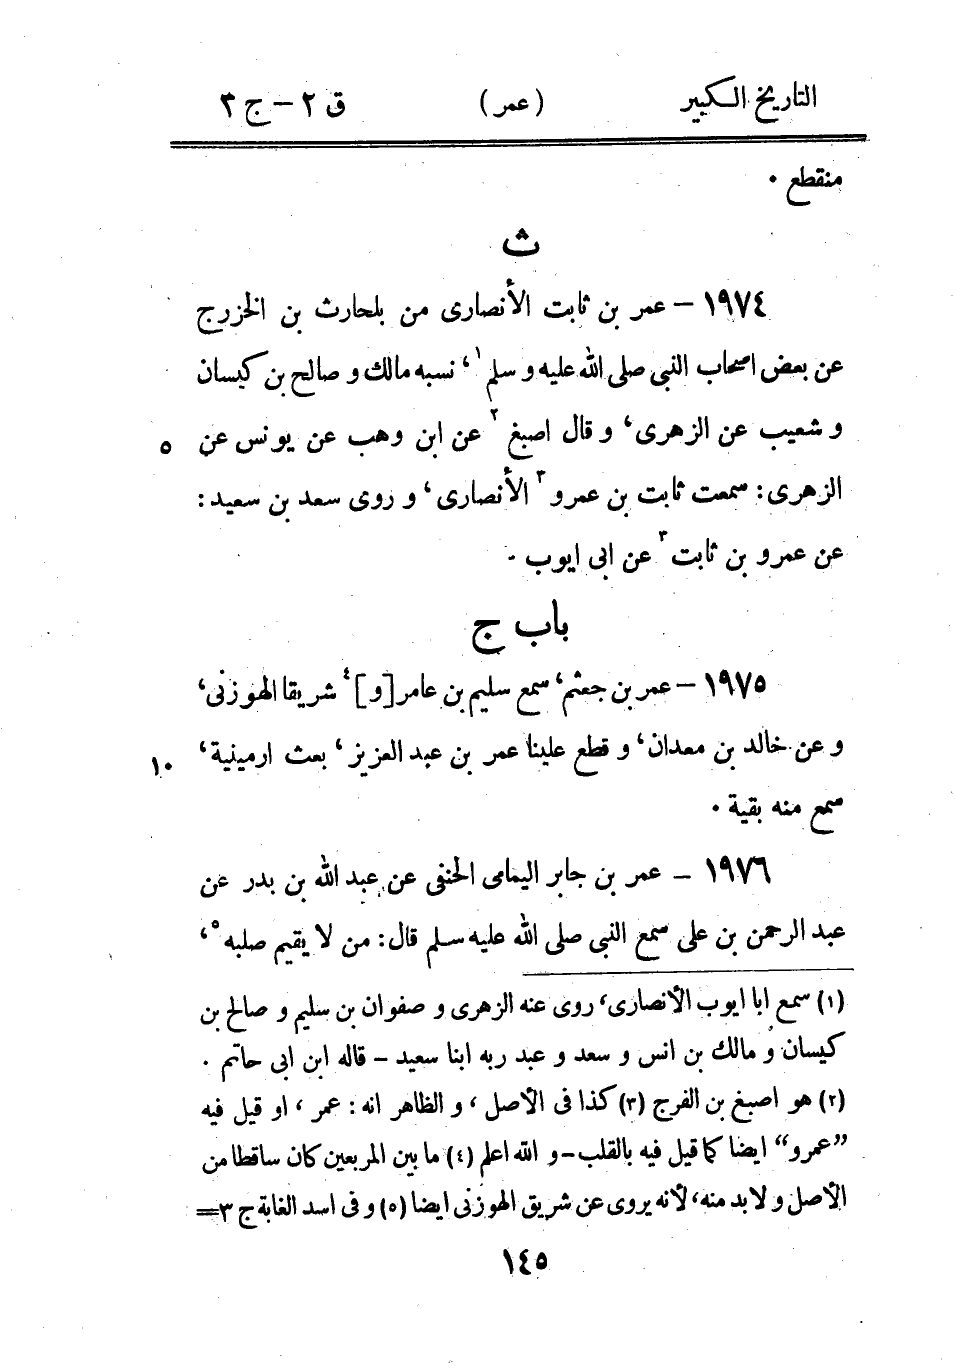 التاريخ الكبير (عمر) ق ٢ – ج ٣
منقطع ٠
ث
١٩٧٤ – عمر بن ثابت الأنصارى من بلحارث بن الخزرج
عن بعض اصحاب النبى صلى الله عليه و سلم ١، نسبه مالك و صالح بن كيسان
و شعيب عن الزهرى، و قال اصبغ ٢ عن ابن وهب عن يونس عن ٥
الزهرى: سمعت ثابت بن عمرو ٣ الأنصارى، و روى سعد بن سعيد:
عن عمرو بن ثابت ٣ عن ابى ايوب ٠
باب ج
١٩٧٥ – عمر بن جعثم، سمع سليم بن عامر [و] ٤ شريقا الهوزنى،
و عن خالد بن معدان، و قطع علينا عمر بن عبد العزيز، بعث ارمينية، ١٠
سمع منه بقية ٠
١٩٧٦ – عمر بن جابر اليمامى الحنفى عن عبد الله بن بدر عن
عبد الرحمن بن على سمع النبى صلى الله عليه سلم قال: من لا يقيم صلبه ٥،
(١) سمع ابا ايوب الأنصارى، روى عنه الزهرى و صفوان بن سليم و صالح بن
كيسان و مالك بن انس و سعد و عبد ربه ابنا سعيد – قاله ابن ابى حاتم ٠
(٢) هو اصبغ بن الفرج (٣) كذا فى الأصل، و الظاهر انه: عمر، او قيل فيه
”عمرو“ ايضا كما قيل فيه بالقلب – و الله اعلم (٤) ما بين المربعين كان ساقطا من
الأصل و لا بد منه، لأنه يروى عن شريق الهوزنى ايضا (٥) و فى اسد الغابة ج ٣ =
١٤٥